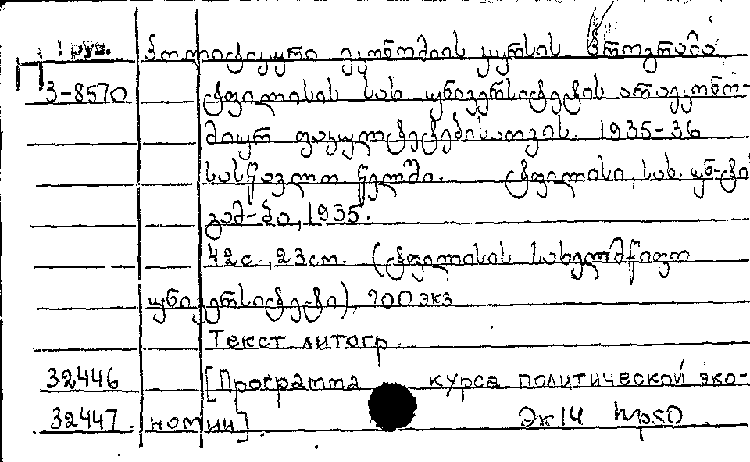 1 груз. პოლიტიკური ეკონომიის კურსის პროგრამა
3-8570 ტფილისის სახ. უნივერსიტეტის არაეკონო-
მიურ ფაკულტეტებისათვის. 1935-36
სასწავლო წელში. ტფილისი, სახ. უნ-ტის
გამ-ბა, 1935.
42 с., 23 см. (ტფილისის სახელმწიფო
უნივერსიტეტი), 700 экз
Текст литогр.
32446 [Программа курса политической эко-
32447 номии]. Эк14